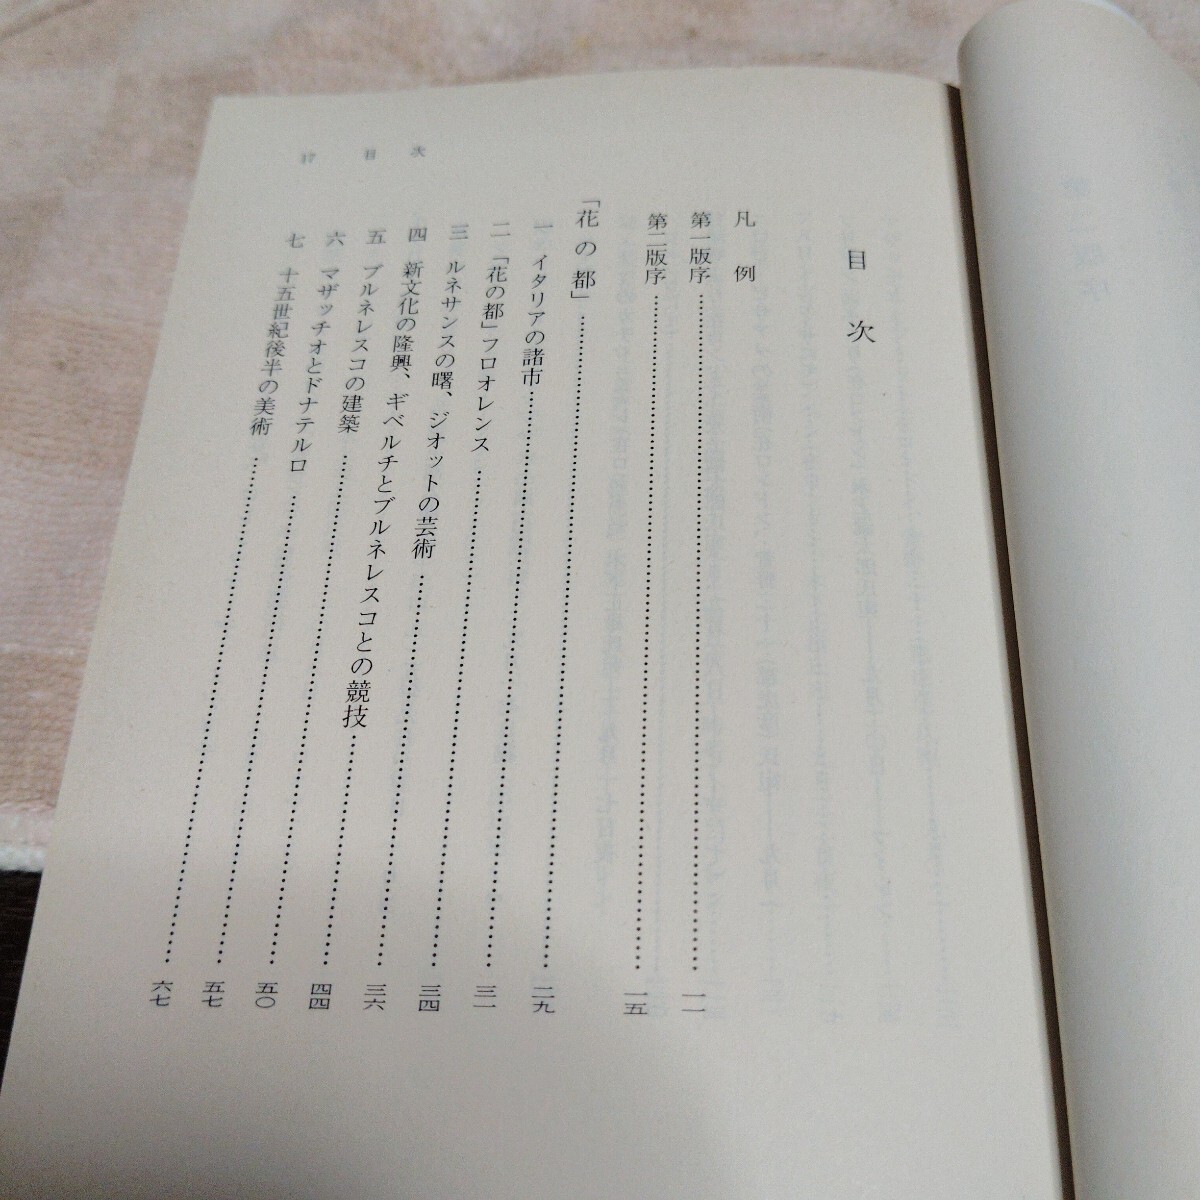 目次
目次
凡例
第一版序……一一
第二版序……一五
「花の都」……二九
一 イタリアの諸市……三一
二 「花の都」フロオレンス……三四
三 ルネサンスの曙、ジオットの芸術……三六
四 新文化の隆興、ギベルチとブルネレスコとの競技……四四
五 ブルネレスコの建築……五〇
六 マザッチオとドナテルロ……五七
七 十五世紀後半の美術……六七